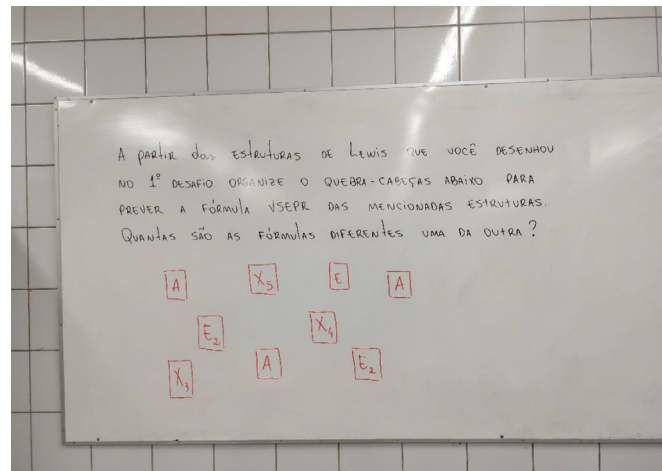 A PARTIR das ESTRUTURAS DE LEWIS QUE VOCÊ DESENHOU
NO 1º DESAFIO ORGANIZE O QUEBRA-CABEÇAS ABAIXO PARA
PREVER A FÓRMULA VSEPR DAS MENCIONADAS ESTRUTURAS.
QUANTAS SÃO AS FÓRMULAS DIFERENTES UMA DA OUTRA?
A X₅ E A
E₂ X₄
X₃ A E₂